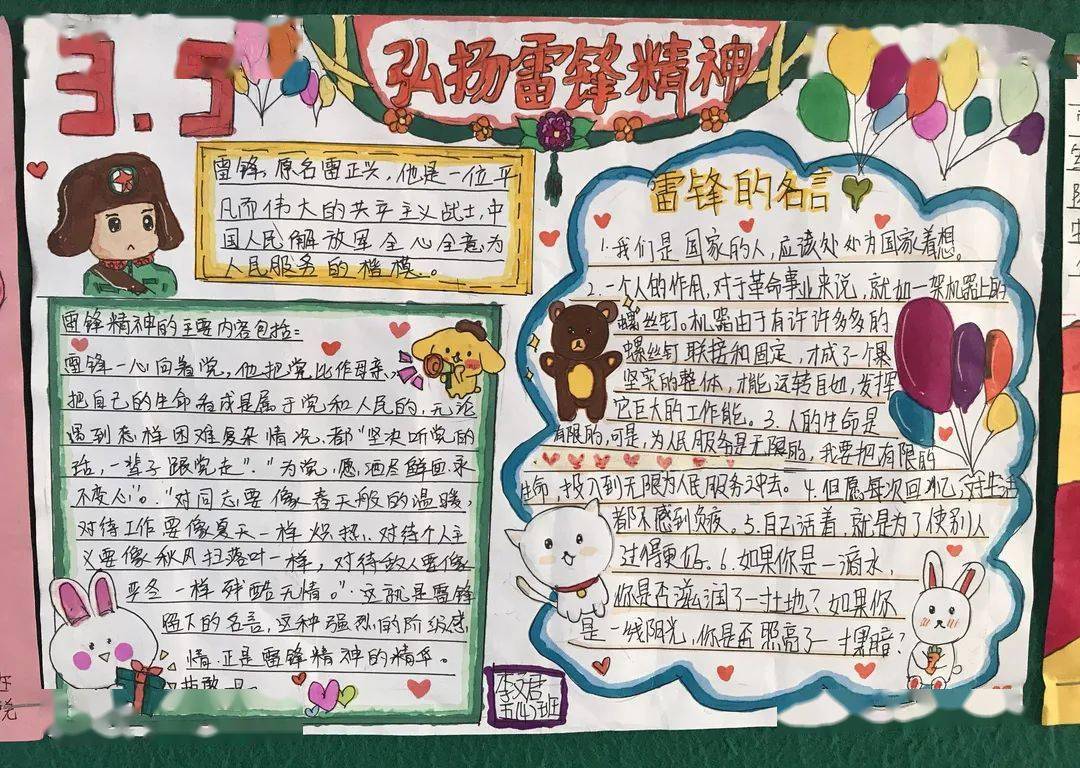 3.5
弘扬雷锋精神
雷锋,原名雷正兴,他是一位平
凡而伟大的共产主义战士,中
国人民解放军全心全意为
人民服务的楷模。
雷锋精神的主要内容包括:
雷锋一心向着党,他把党比作母亲,
把自己的生命看成是属于党和人民的,无论
遇到怎样困难复杂情况,都“坚决听党的
话,一辈子跟党走”.“为党,愿洒尽鲜血,永
不变心”。“对同志要像春天般的温暖,
对待工作要像夏天一样炽热,对待个人主
义要像秋风扫落叶一样,对待敌人要像
严冬一样残酷无情。”这就是雷锋
强大的名言,这种强烈的阶级感
情正是雷锋精神的精华。
雷锋的名言
1.我们是国家的人,应该处处为国家着想。
2.一个人的作用,对于革命事业来说,就如一架机器上的
螺丝钉。机器由于有许许多多的
螺丝钉联接和固定,才成了一个
坚实的整体,才能运转自如,发挥
它巨大的工作能。3.人的生命是
有限的,可是,为人民服务是无限的,我要把有限的
生命,投入到无限为人民服务之中去。4.但愿每次回忆,对生活
都不感到负疚。5.自己活着,就是为了使别人
过得更好。6.如果你是一滴水,
你是否滋润了一寸土地?如果你
是一线阳光,你是否照亮了一片黑暗?